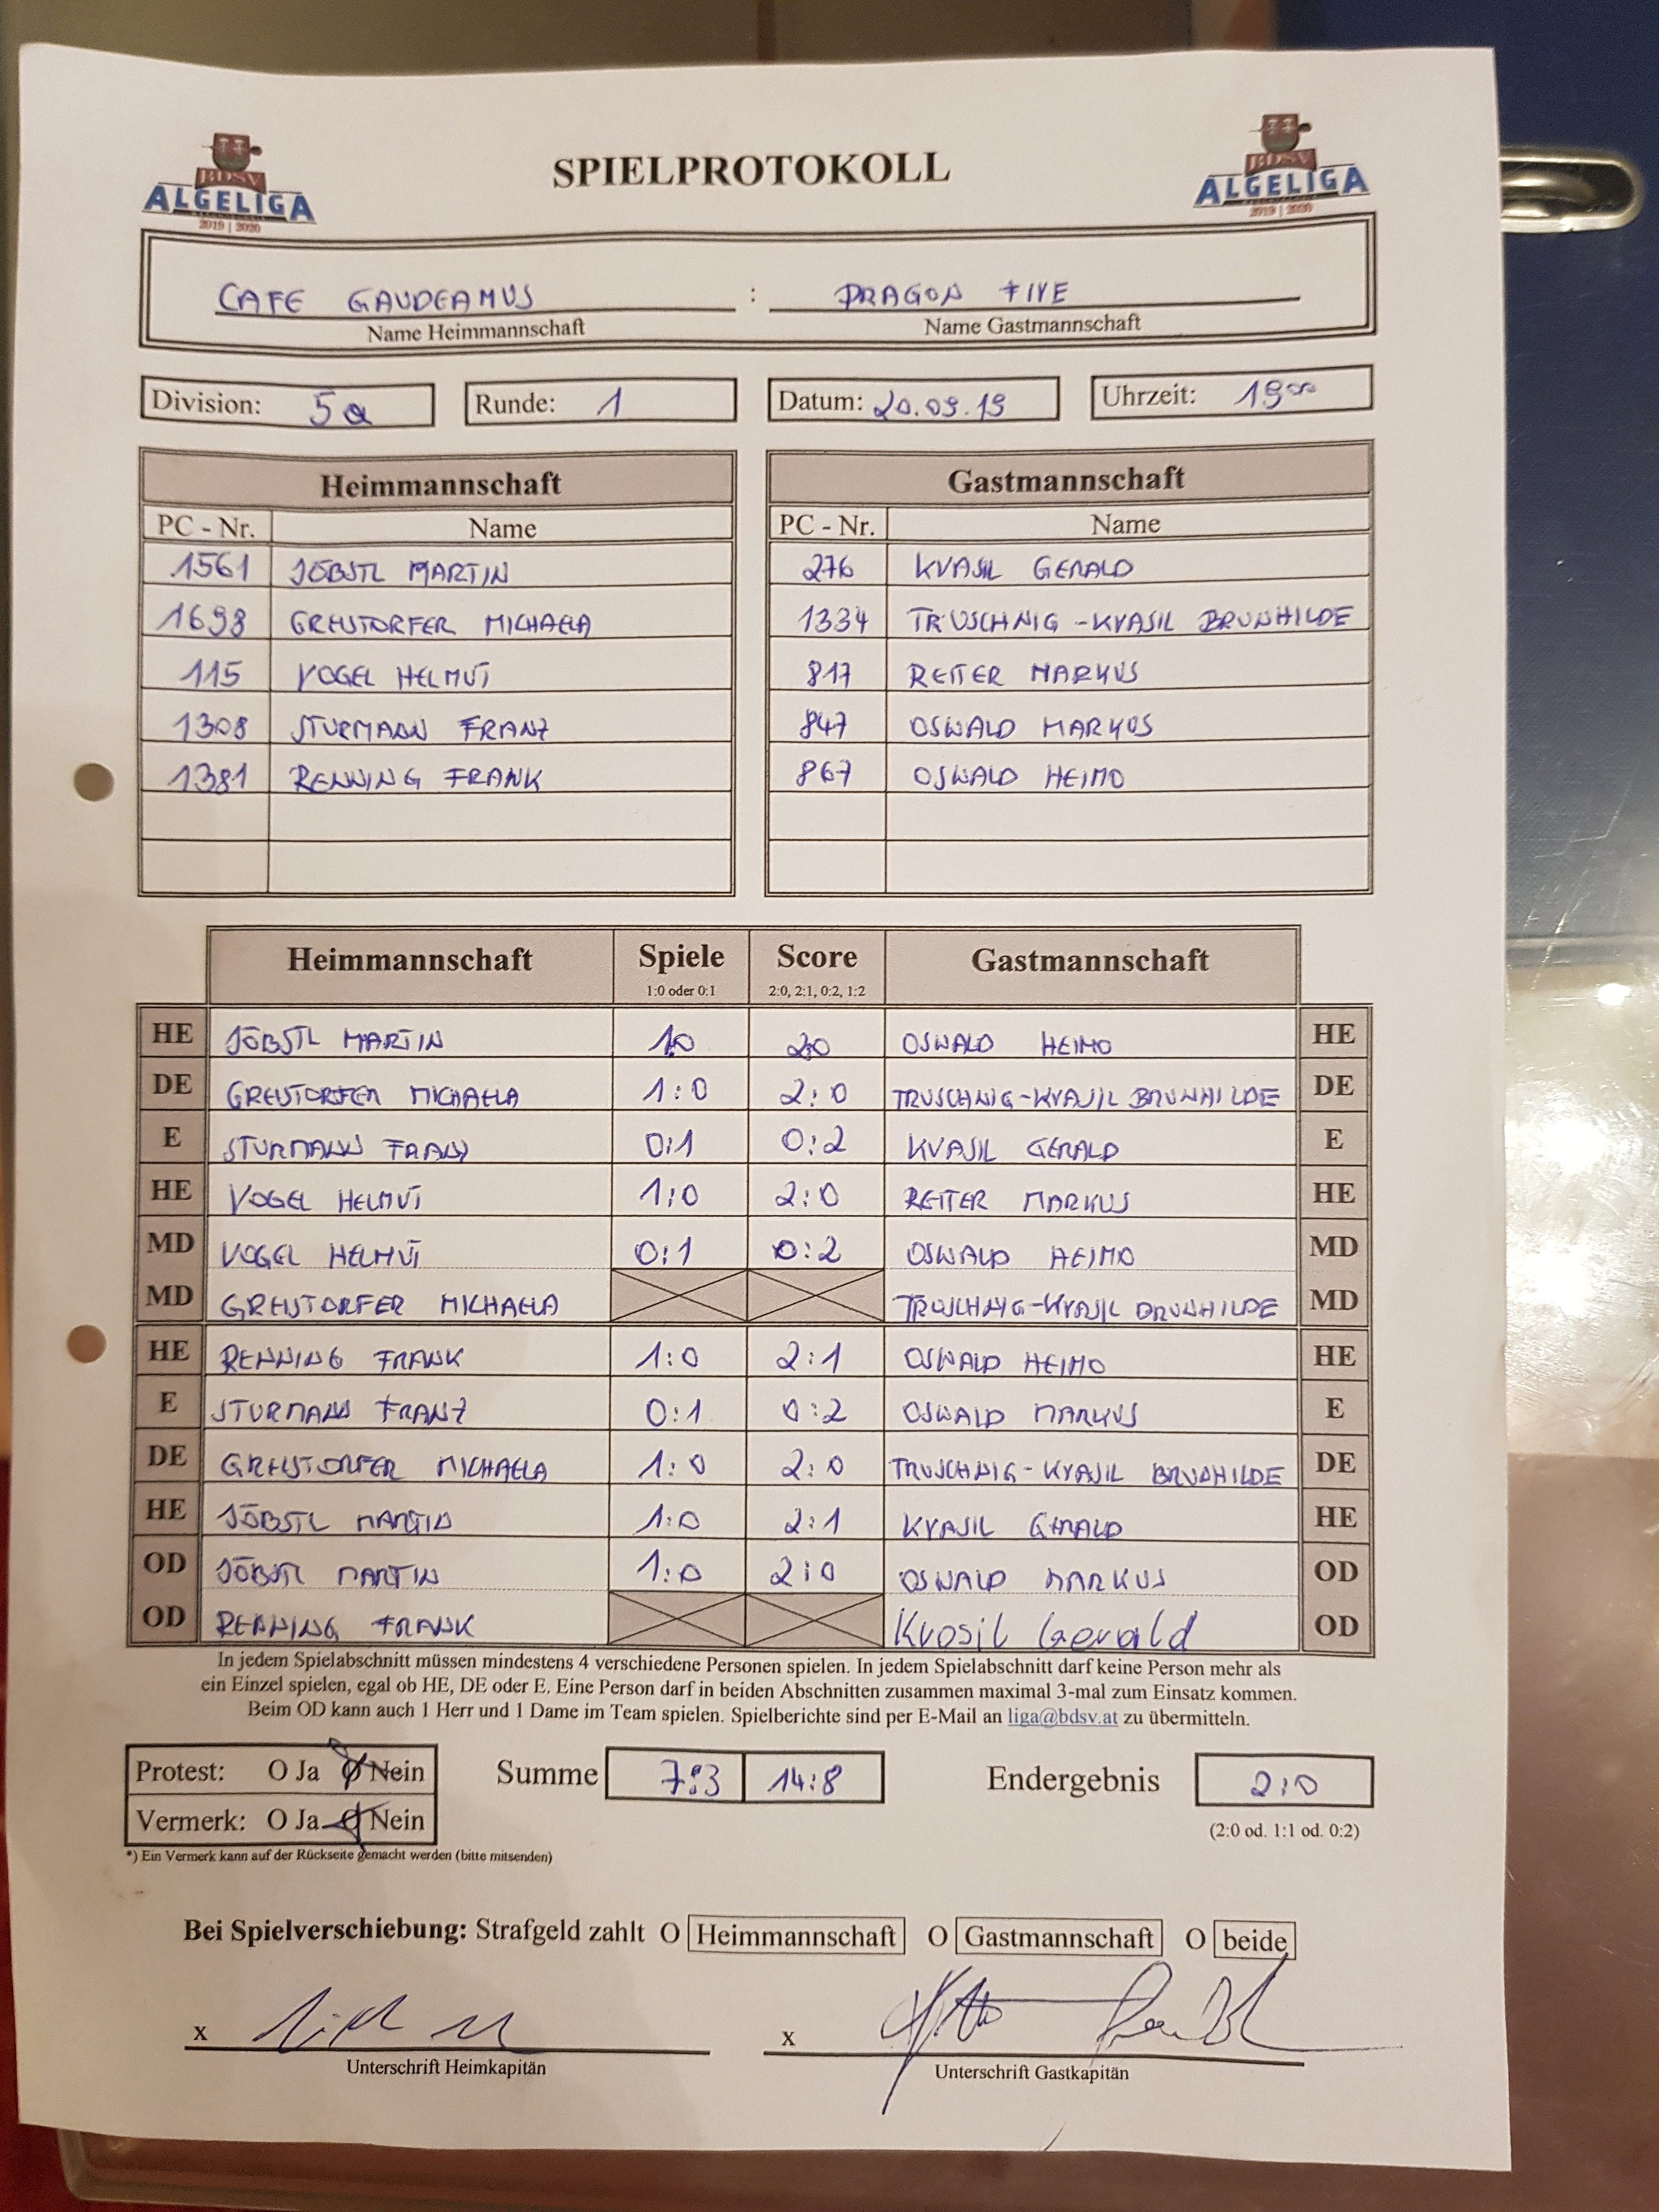 BDSV
ALGELIGA
2019 | 2020
SPIELPROTOKOLL
BDSV
ALGELIGA
2019 | 2020
CAFE GAUDEAMUS : DRAGON FIVE
Name Heimmannschaft Name Gastmannschaft
Division: 5a Runde: 1 Datum: 20.09.19 Uhrzeit: 19⁰⁰
Heimmannschaft Gastmannschaft
PC - Nr. Name PC - Nr. Name
1561 JÖBSTL MARTIN 276 KVASIL GERALD
1698 GREISTORFER MICHAELA 1334 TRUSCHNIG-KVASIL BRUNHILDE
115 VOGEL HELMUT 817 REITER MARKUS
1308 STURMANN FRANZ 847 OSWALD MARKUS
1381 RENNING FRANK 867 OSWALD HEIMO
Heimmannschaft Spiele Score Gastmannschaft
1:0 oder 0:1 2:0, 2:1, 0:2, 1:2
HE JÖBSTL MARTIN 1:0 2:0 OSWALD HEIMO HE
DE GREISTORFER MICHAELA 1:0 2:0 TRUSCHNIG-KVASIL BRUNHILDE DE
E STURMANN FRANZ 0:1 0:2 KVASIL GERALD E
HE VOGEL HELMUT 1:0 2:0 REITER MARKUS HE
MD VOGEL HELMUT 0:1 0:2 OSWALD HEIMO MD
MD GREISTORFER MICHAELA TRUSCHNIG-KVASIL BRUNHILDE MD
HE RENNING FRANK 1:0 2:1 OSWALD HEIMO HE
E STURMANN FRANZ 0:1 0:2 OSWALD MARKUS E
DE GREISTORFER MICHAELA 1:0 2:0 TRUSCHNIG-KVASIL BRUNHILDE DE
HE JÖBSTL MARTIN 1:0 2:1 KVASIL GERALD HE
OD JÖBSTL MARTIN 1:0 2:0 OSWALD MARKUS OD
OD RENNING FRANK Kvasil Gerald OD
In jedem Spielabschnitt müssen mindestens 4 verschiedene Personen spielen. In jedem Spielabschnitt darf keine Person mehr als
ein Einzel spielen, egal ob HE, DE oder E. Eine Person darf in beiden Abschnitten zusammen maximal 3-mal zum Einsatz kommen.
Beim OD kann auch 1 Herr und 1 Dame im Team spielen. Spielberichte sind per E-Mail an liga@bdsv.at zu übermitteln.
Protest: O Ja O Nein Summe 7:3 14:8 Endergebnis 2:0
Vermerk: O Ja O Nein (2:0 od. 1:1 od. 0:2)
*) Ein Vermerk kann auf der Rückseite gemacht werden (bitte mitsenden)
Bei Spielverschiebung: Strafgeld zahlt O Heimmannschaft O Gastmannschaft O beide
x x
Unterschrift Heimkapitän Unterschrift Gastkapitän